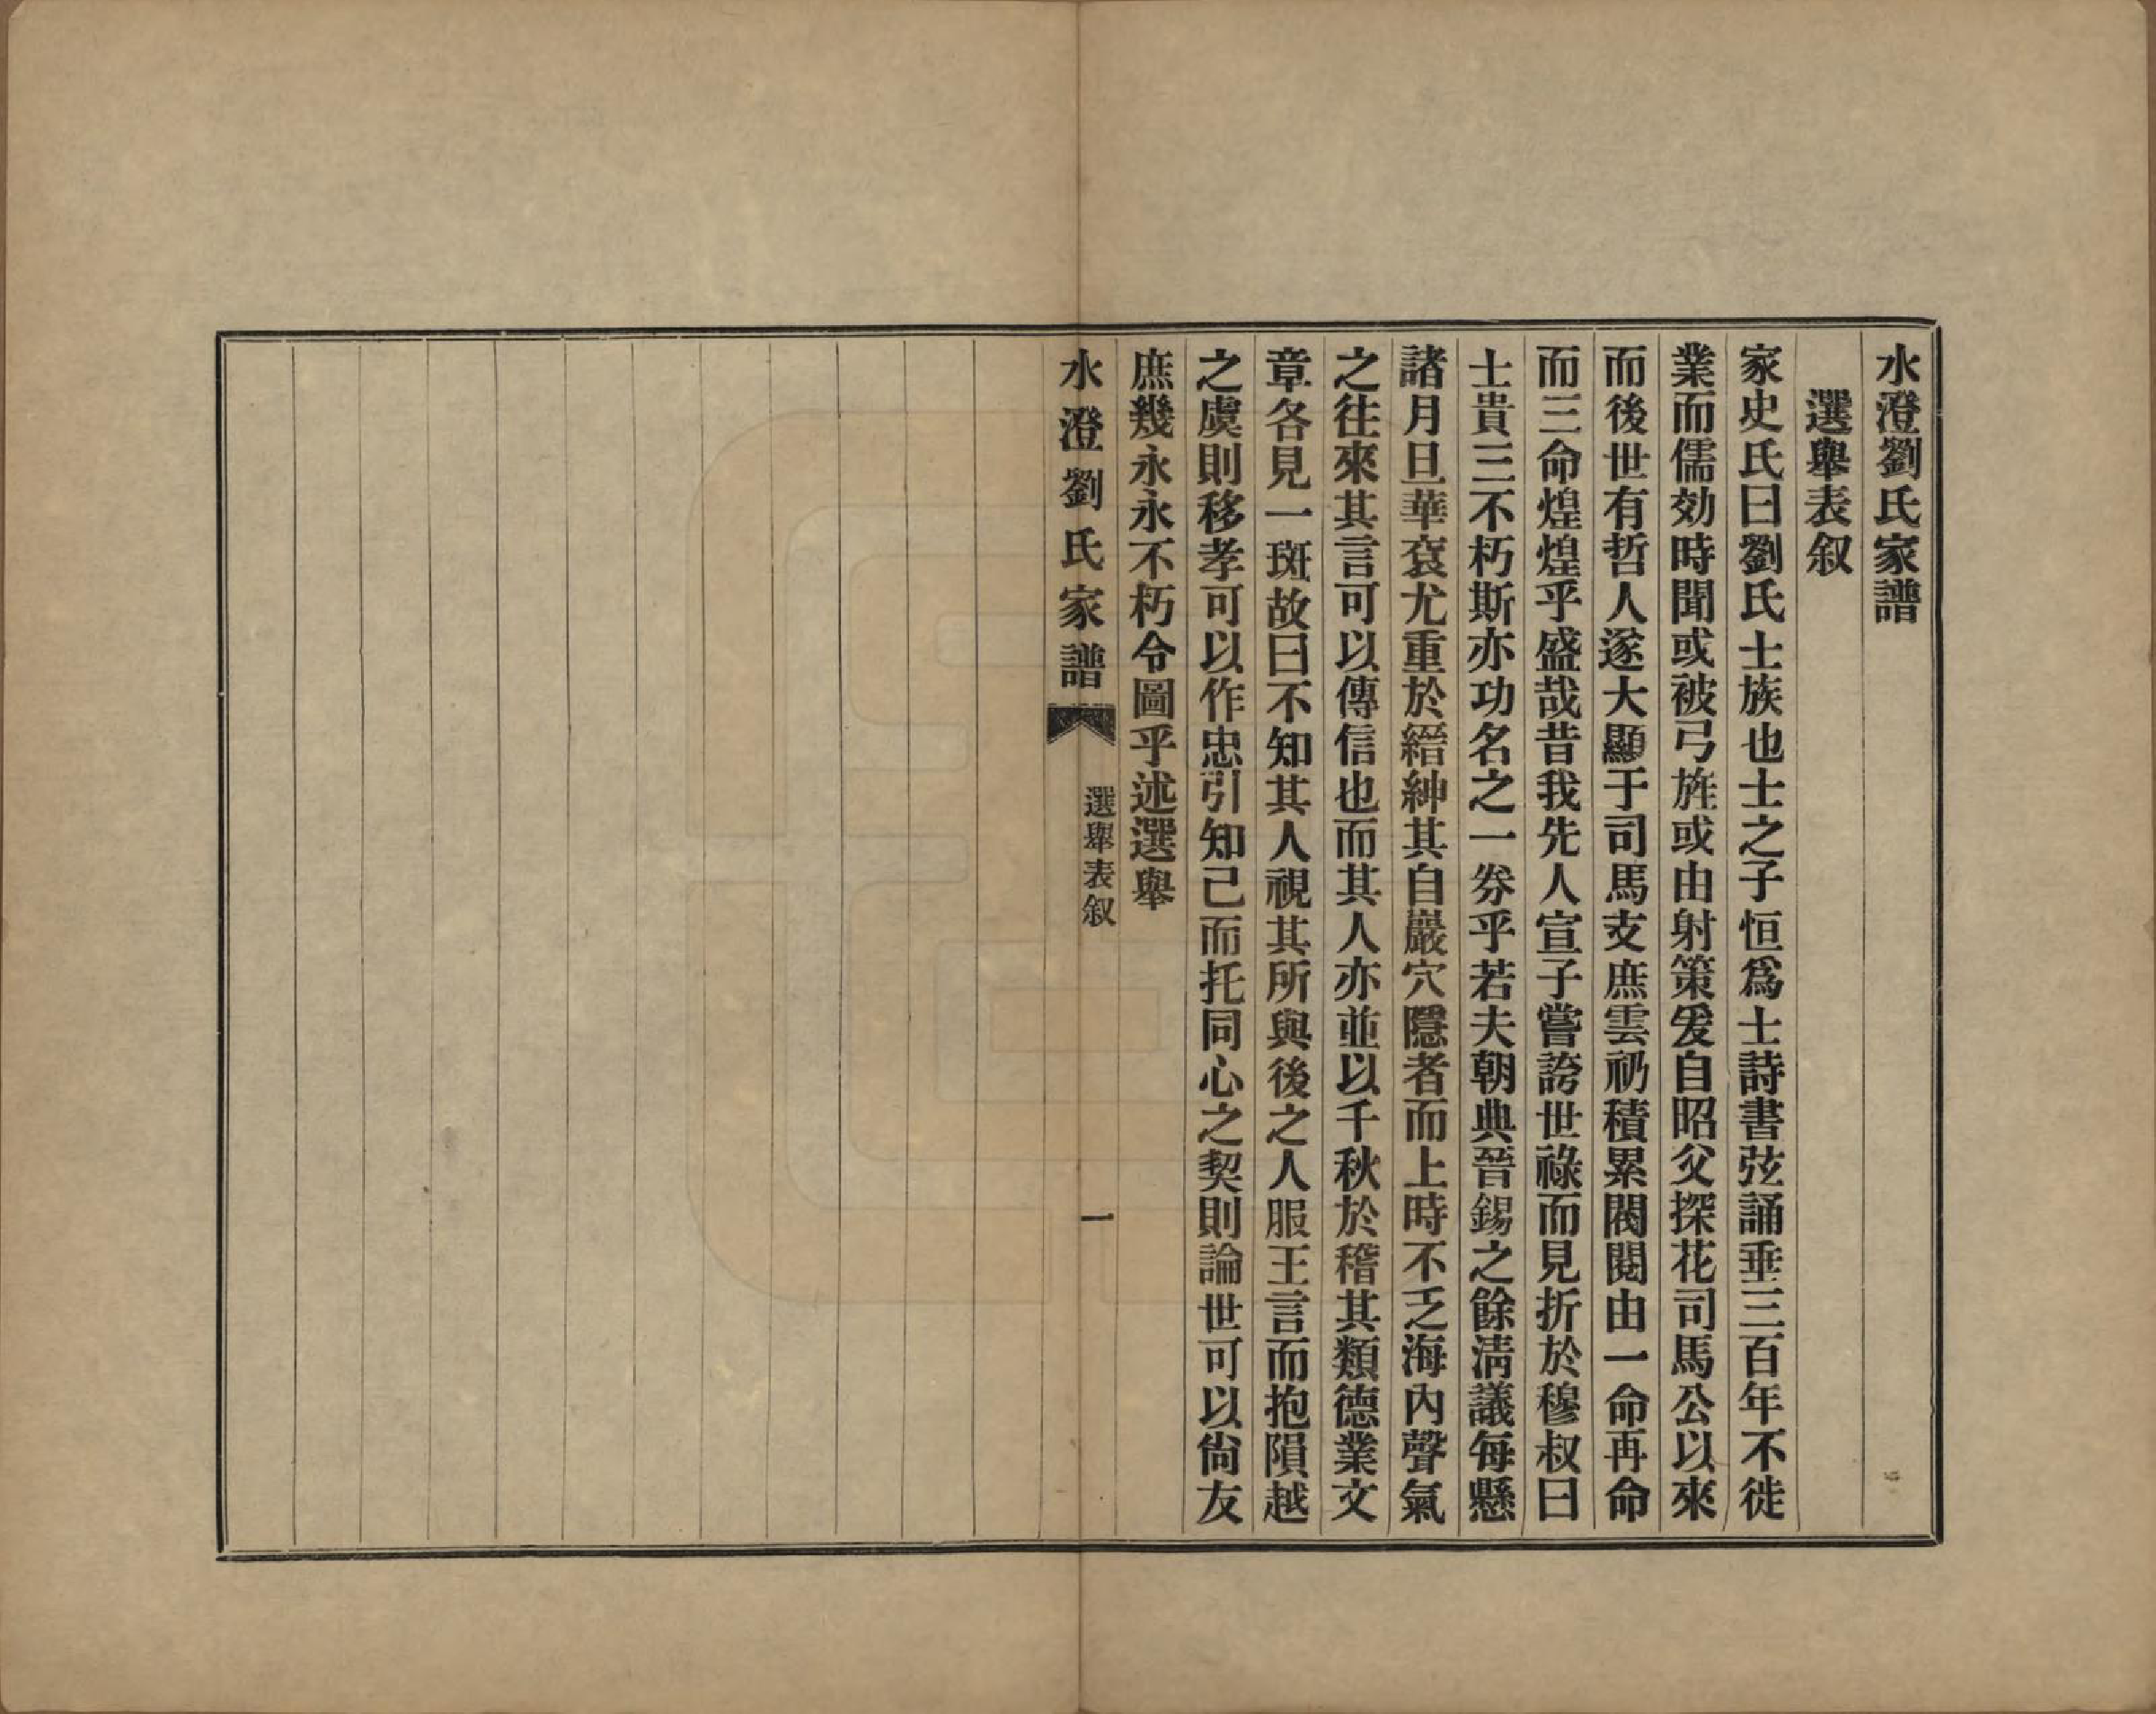 水澄劉氏家譜
選舉表叙
家史氏曰劉氏士族也士之子恒爲士詩書弦誦垂三百年不徙
業而儒効時聞或被弓旌或由射策爰自昭父探花司馬公以來
而後世有哲人遂大顯于司馬支庶雲礽積累閥閱由一命再命
而三命煌煌乎盛哉昔我先人宣子嘗誇世祿而見折於穆叔曰
士貴三不朽斯亦功名之一劵乎若夫朝典晉錫之餘淸議每懸
諸月旦華袞尤重於縉紳其自巖穴隱者而上時不乏海內聲氣
之往來其言可以傳信也而其人亦並以千秋於稽其類德業文
章各見一斑故曰不知其人視其所與後之人服王言而抱隕越
之虞則移孝可以作忠引知己而托同心之契則論世可以尙友
庶幾永永不朽令圖乎述選舉
水澄劉氏家譜
選舉表叙
一